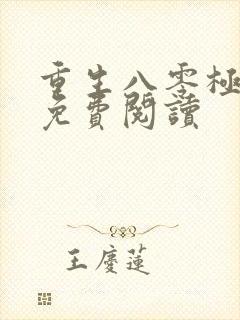 重生八零極
免費閱讀
王慶蓮